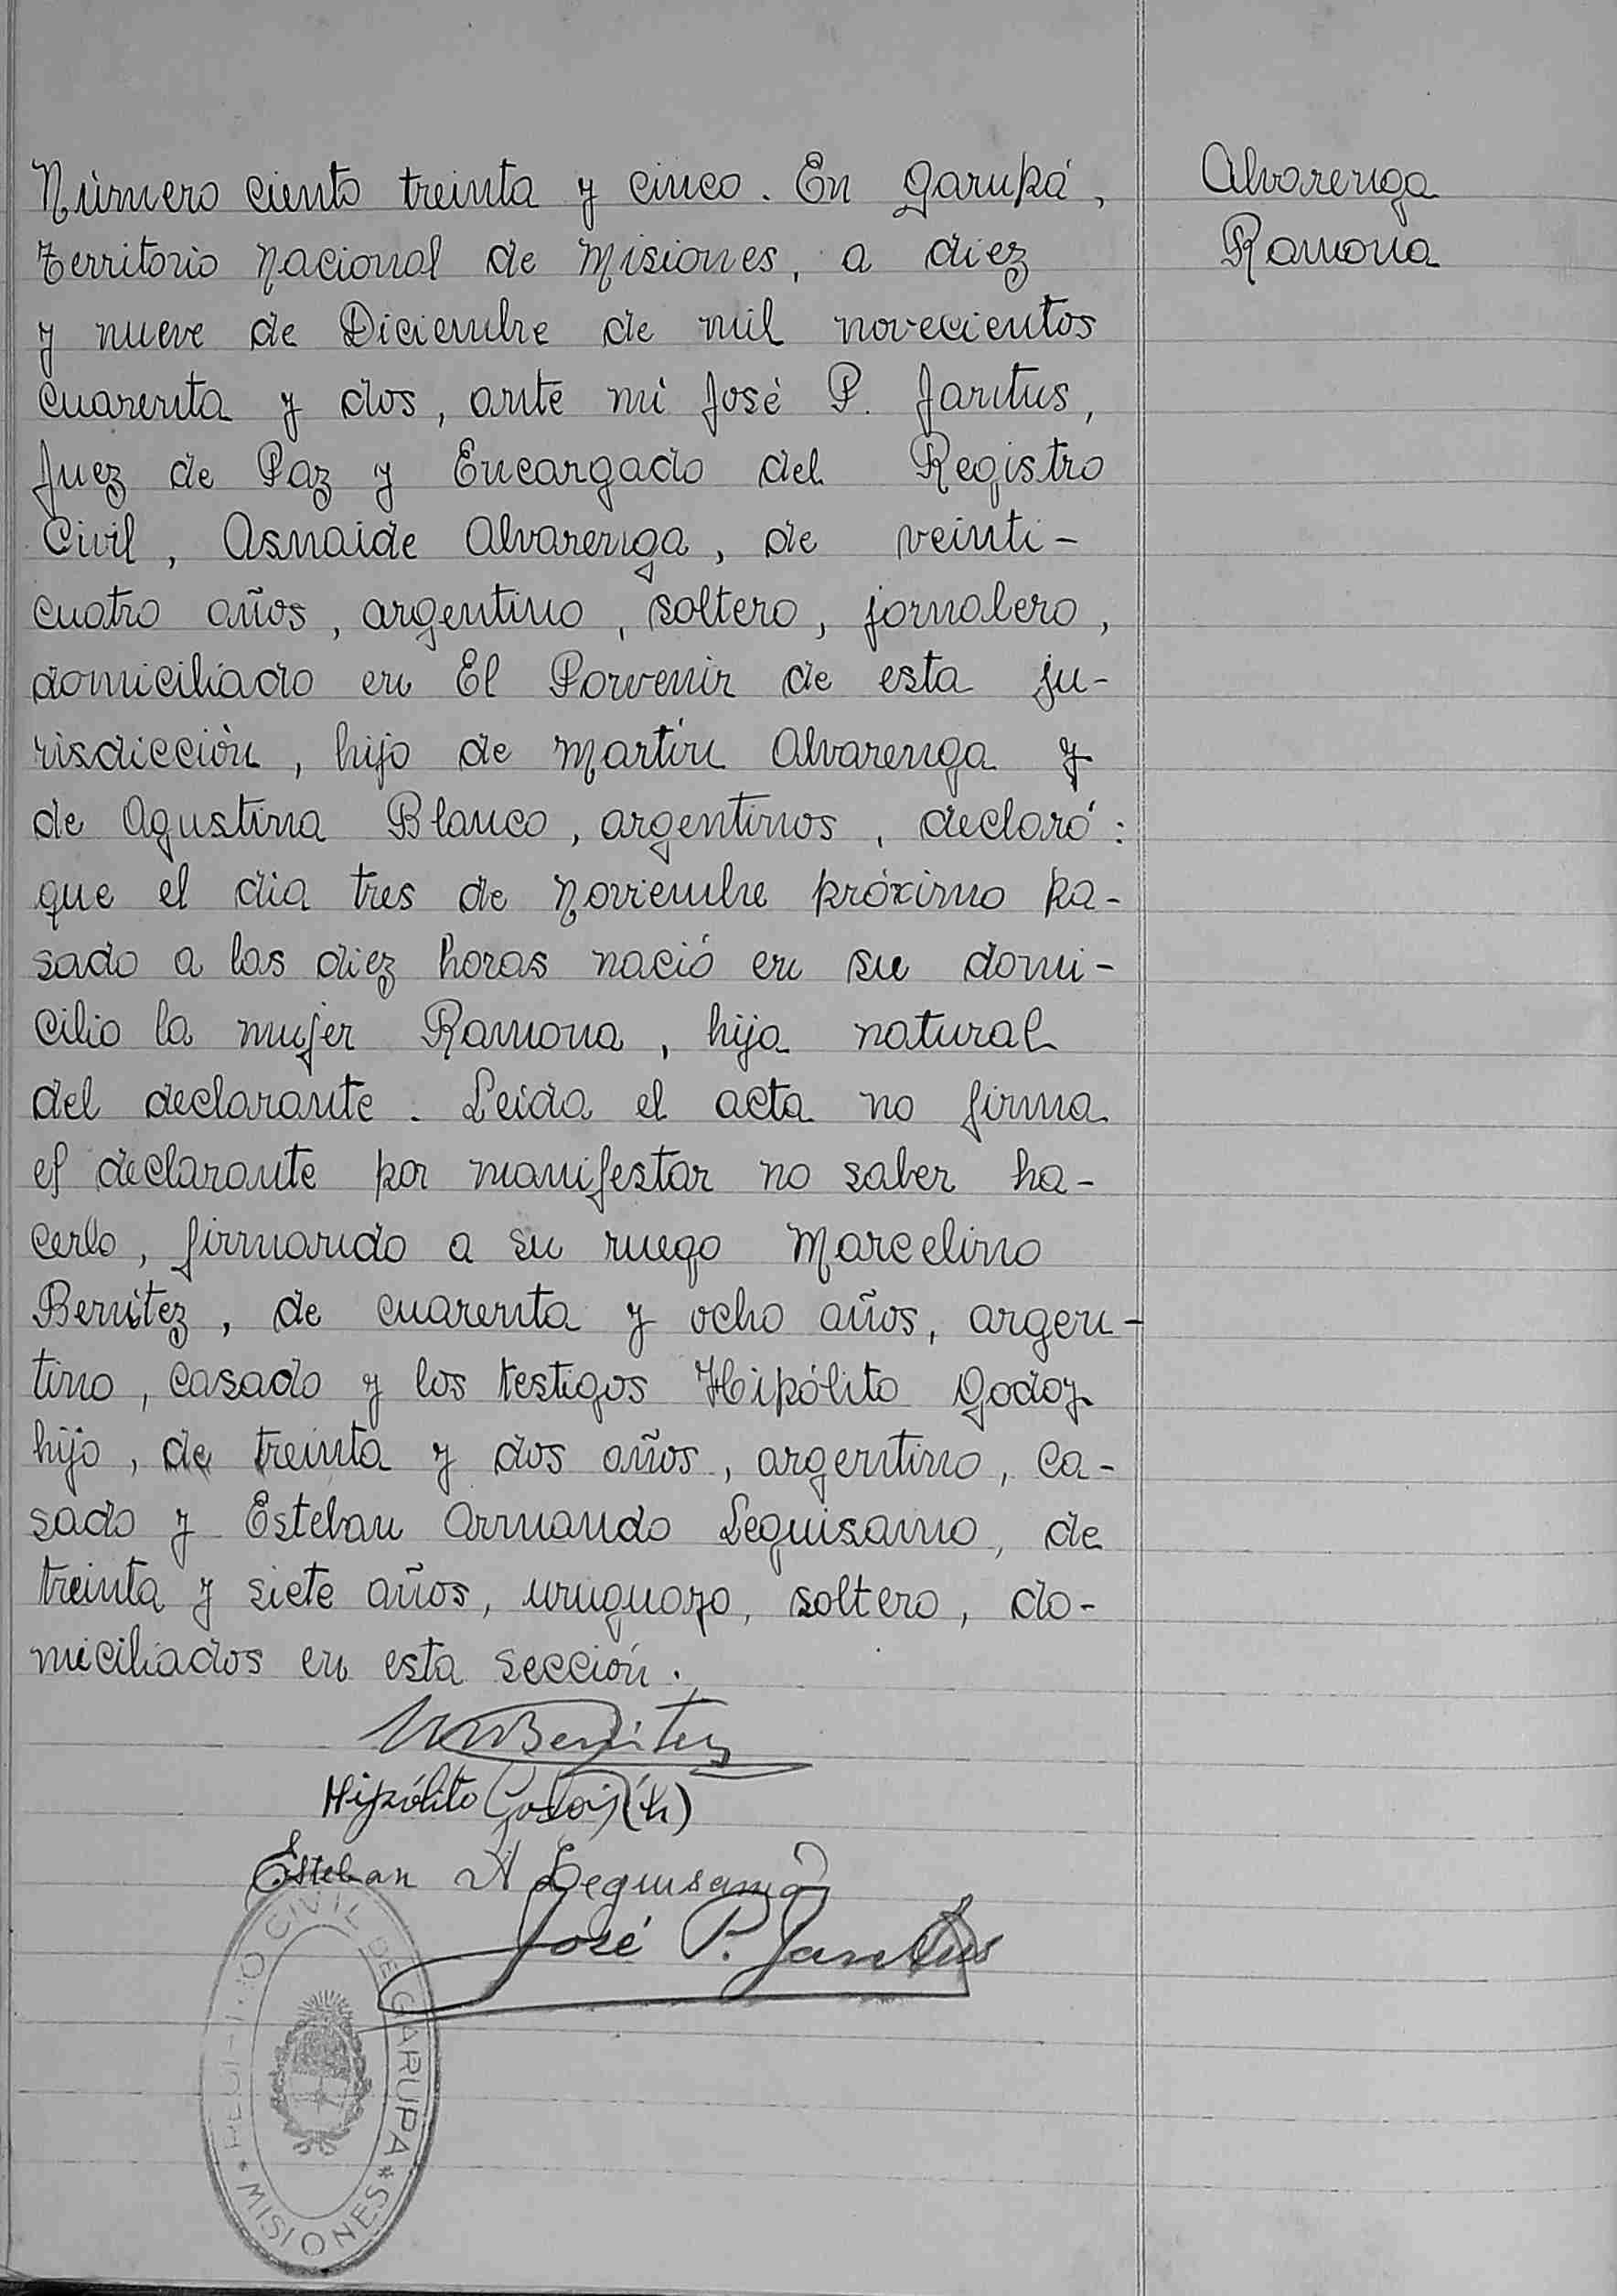 Número ciento treinta y cinco. En Garupá,
territorio Nacional de Misiones, a diez
y nueve de Diciembre de mil novecientos
cuarenta y dos, ante mi José P. Jantus,
Juez de Paz y Encargado del Registro
Civil, Asnaide Alvarenga, de veinti-
cuatro años, argentino, soltero, jornalero,
domiciliado en El Porvenir de esta ju-
risdicción, hijo de Martín Alvarenga y
de Agustina Blanco, argentinos, declaró:
que el dia tres de Noviembre próximo pa-
sado a las diez horas nació en su domi-
cilio la mujer Ramona, hija natural
del declarante. Leida el acta no firma
el declarante por manifestar no saber ha-
cerlo, firmando a su ruego Marcelino
Benítez, de cuarenta y ocho años, argen-
tino, casado y los testigos Hipólito Godoy
hijo, de treinta y dos años, argentino, ca-
sado y Esteban Armando Leguisamo, de
treinta y siete años, uruguayo, soltero, do-
miciliados en esta sección.
Alvarenga
Ramona
M Benitez
Hipólito Godoy (h)
Esteban A Leguisamo
José P. Jantus
REGISTRO CIVIL DE GARUPA
* MISIONES *